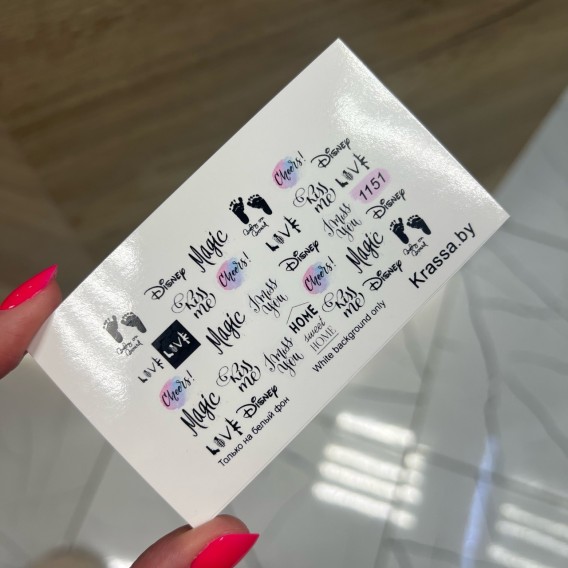 Cheers! Disney
Kiss me LOVE 1151
Magic LOVE I miss You Disney
Disney Cheers! Disney Magic
Kiss me I miss You Cheers! Kiss me Disney Krassa.by
Magic HOME sweet HOME
LOVE LOVE I miss You
Cheers! Kiss me White background only
Magic Disney
LOVE
Только на белый фон